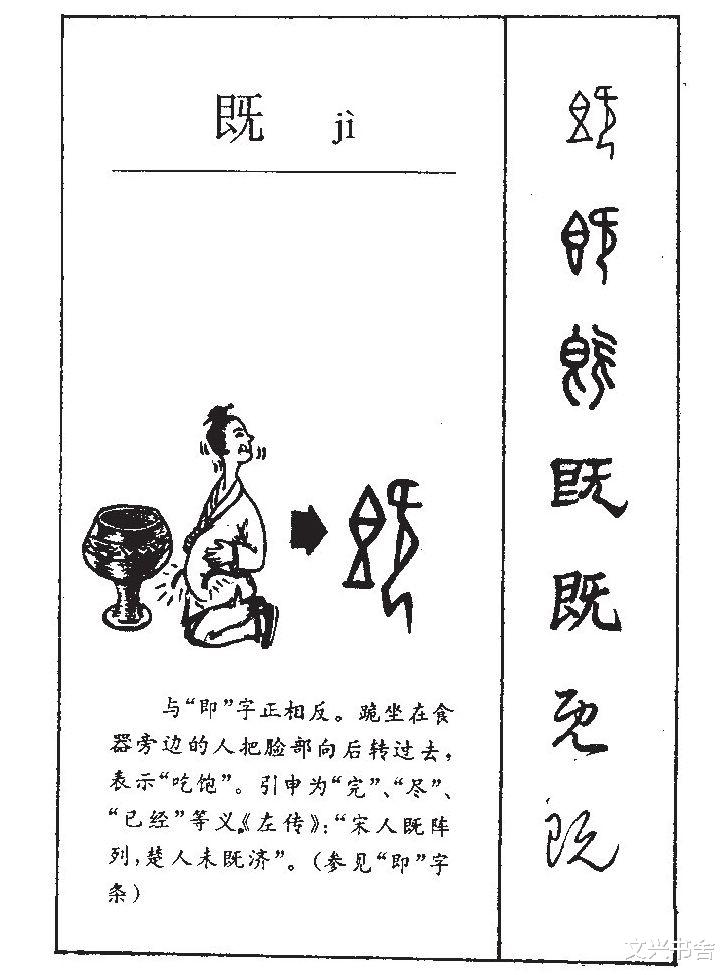 既 jì
与“即”字正相反。跪坐在食
器旁边的人把脸部向后转过去，
表示“吃饱”。引申为“完”、“尽”、
“已经”等义。《左传》：“宋人既阵
列，楚人未既济”。（参见“即”字
条）
既
既
既
既
既
既
既
既
文兴书舍